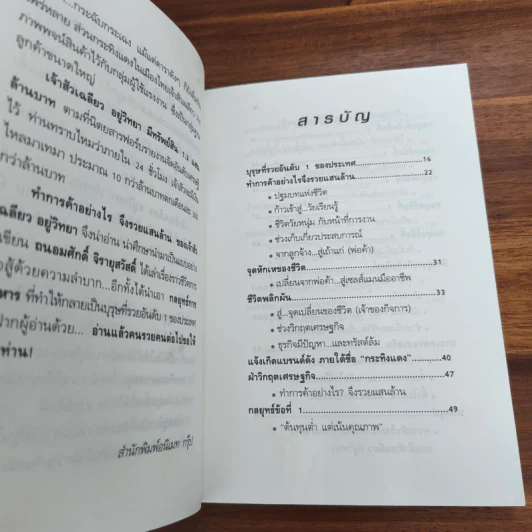 ...กระฉับกระเฉง แม้แต่ดาราดังๆ
แพร่หลาย ส่วนกระทิงแดงในเมืองไทย
ภาพพจน์สินค้าไว้กับกลุ่มผู้ใช้แรงงาน ซึ่งเป็น
ลูกค้าขนาดใหญ่
เจ้าสัวเฉลียว อยู่วิทยา มีทรัพย์สิน 1.3 แสน
ล้านบาท ตามที่นิตยสารฟอร์บรายงาน
ไว้ ท่านทราบไหมว่าภายใน 24 ชั่วโมง
ไหลมาเทมา ประมาณ 10 กว่าล้านบาท
กว่าล้านบาท
ทำการค้าอย่างไร จึงรวยแสนล้าน ของเจ้าสัว
เฉลียว อยู่วิทยา จึงน่าอ่าน น่าศึกษานำมาเป็นแบบอย่าง
เขียน ถนอมศักดิ์ จิรายุสวัสดิ์ ได้เล่าเรื่องราวชีวิตการ
สู้ด้วยความลำบาก...อีกทั้งได้นำเอา กลยุทธ์การ
หาร ที่ทำให้กลายเป็นบุรุษที่รวยอันดับ 1 ของประเทศ
ฝากผู้อ่านด้วย... อ่านแล้วคนรวยคนต่อไปขอให้
ท่าน!
สำนักพิมพ์อนิเมท กรุ๊ป
สารบัญ
บุรุษที่รวยอันดับ 1 ของประเทศ...................16
ทำการค้าอย่างไรจึงรวยแสนล้าน...................22
• ปฐมบทแห่งชีวิต
• ก้าวเข้าสู่...วัยเรียนรู้
• ชีวิตวัยหนุ่ม กับหน้าที่การงาน
• ช่วงเก็บเกี่ยวประสบการณ์
• จากลูกจ้าง...สู่เถ้าแก่ (พ่อค้า)
จุดหักเหของชีวิต...................31
• เปลี่ยนจากพ่อค้า...สู่เซลส์แมนมืออาชีพ
ชีวิตพลิกผัน...................33
• สู่...จุดเปลี่ยนของชีวิต (เจ้าของกิจการ)
• ช่วงวิกฤตเศรษฐกิจ
• ธุรกิจมีปัญหา...และทรัสต์ล้ม
แจ้งเกิดแบรนด์ดัง ภายใต้ชื่อ “กระทิงแดง”...........40
ฝ่าวิกฤตเศรษฐกิจ...................47
• ทำการค้าอย่างไร? จึงรวยแสนล้าน
กลยุทธ์ข้อที่ 1...................49
• “ต้นทุนต่ำ แต่เน้นคุณภาพ”